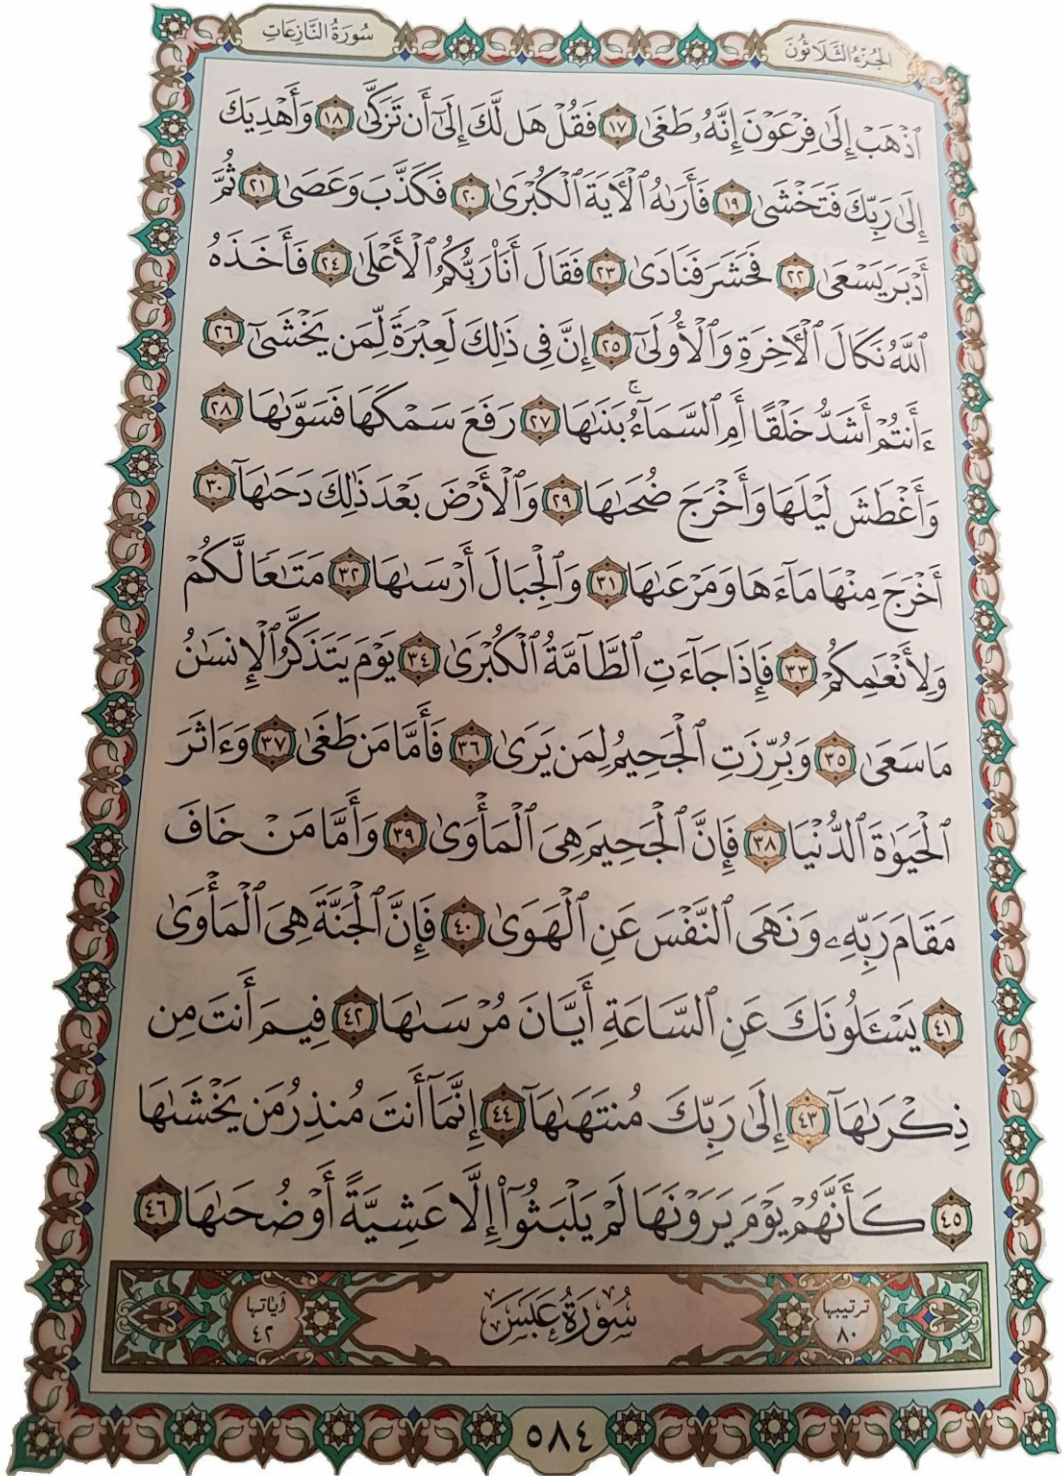 الجُزْءُ الثَّلَاثُونَ
سُورَةُ النَّازِعَاتِ
ٱذْهَبْ إِلَىٰ فِرْعَوْنَ إِنَّهُۥ طَغَىٰ ١٧ فَقُلْ هَل لَّكَ إِلَىٰٓ أَن تَزَكَّىٰ ١٨ وَأَهْدِيَكَ
إِلَىٰ رَبِّكَ فَتَخْشَىٰ ١٩ فَأَرَىٰهُ ٱلْأٓيَةَ ٱلْكُبْرَىٰ ٢٠ فَكَذَّبَ وَعَصَىٰ ٢١ ثُمَّ
أَدْبَرَ يَسْعَىٰ ٢٢ فَحَشَرَ فَنَادَىٰ ٢٣ فَقَالَ أَنَا۠ رَبُّكُمُ ٱلْأَعْلَىٰ ٢٤ فَأَخَذَهُ
ٱللَّهُ نَكَالَ ٱلْأٓخِرَةِ وَٱلْأُولَىٰٓ ٢٥ إِنَّ فِى ذَٰلِكَ لَعِبْرَةً لِّمَن يَخْشَىٰٓ ٢٦
ءَأَنتُمْ أَشَدُّ خَلْقًا أَمِ ٱلسَّمَآءُ ۚ بَنَىٰهَا ٢٧ رَفَعَ سَمْكَهَا فَسَوَّىٰهَا ٢٨
وَأَغْطَشَ لَيْلَهَا وَأَخْرَجَ ضُحَىٰهَا ٢٩ وَٱلْأَرْضَ بَعْدَ ذَٰلِكَ دَحَىٰهَآ ٣٠
أَخْرَجَ مِنْهَا مَآءَهَا وَمَرْعَىٰهَا ٣١ وَٱلْجِبَالَ أَرْسَىٰهَا ٣٢ مَتَٰعًا لَّكُمْ
وَلِأَنْعَٰمِكُمْ ٣٣ فَإِذَا جَآءَتِ ٱلطَّآمَّةُ ٱلْكُبْرَىٰ ٣٤ يَوْمَ يَتَذَكَّرُ ٱلْإِنسَٰنُ
مَا سَعَىٰ ٣٥ وَبُرِّزَتِ ٱلْجَحِيمُ لِمَن يَرَىٰ ٣٦ فَأَمَّا مَن طَغَىٰ ٣٧ وَءَاثَرَ
ٱلْحَيَوٰةَ ٱلدُّنْيَا ٣٨ فَإِنَّ ٱلْجَحِيمَ هِىَ ٱلْمَأْوَىٰ ٣٩ وَأَمَّا مَنْ خَافَ
مَقَامَ رَبِّهِۦ وَنَهَى ٱلنَّفْسَ عَنِ ٱلْهَوَىٰ ٤٠ فَإِنَّ ٱلْجَنَّةَ هِىَ ٱلْمَأْوَىٰ
٤١ يَسْـَٔلُونَكَ عَنِ ٱلسَّاعَةِ أَيَّانَ مُرْسَىٰهَا ٤٢ فِيمَ أَنتَ مِن
ذِكْرَىٰهَآ ٤٣ إِلَىٰ رَبِّكَ مُنتَهَىٰهَآ ٤٤ إِنَّمَآ أَنتَ مُنذِرُ مَن يَخْشَىٰهَا
٤٥ كَأَنَّهُمْ يَوْمَ يَرَوْنَهَا لَمْ يَلْبَثُوٓا۟ إِلَّا عَشِيَّةً أَوْ ضُحَىٰهَا ٤٦
ترتيبها ٨٠ سُورَةُ عَبَسَ آياتها ٤٢
٥٨٤